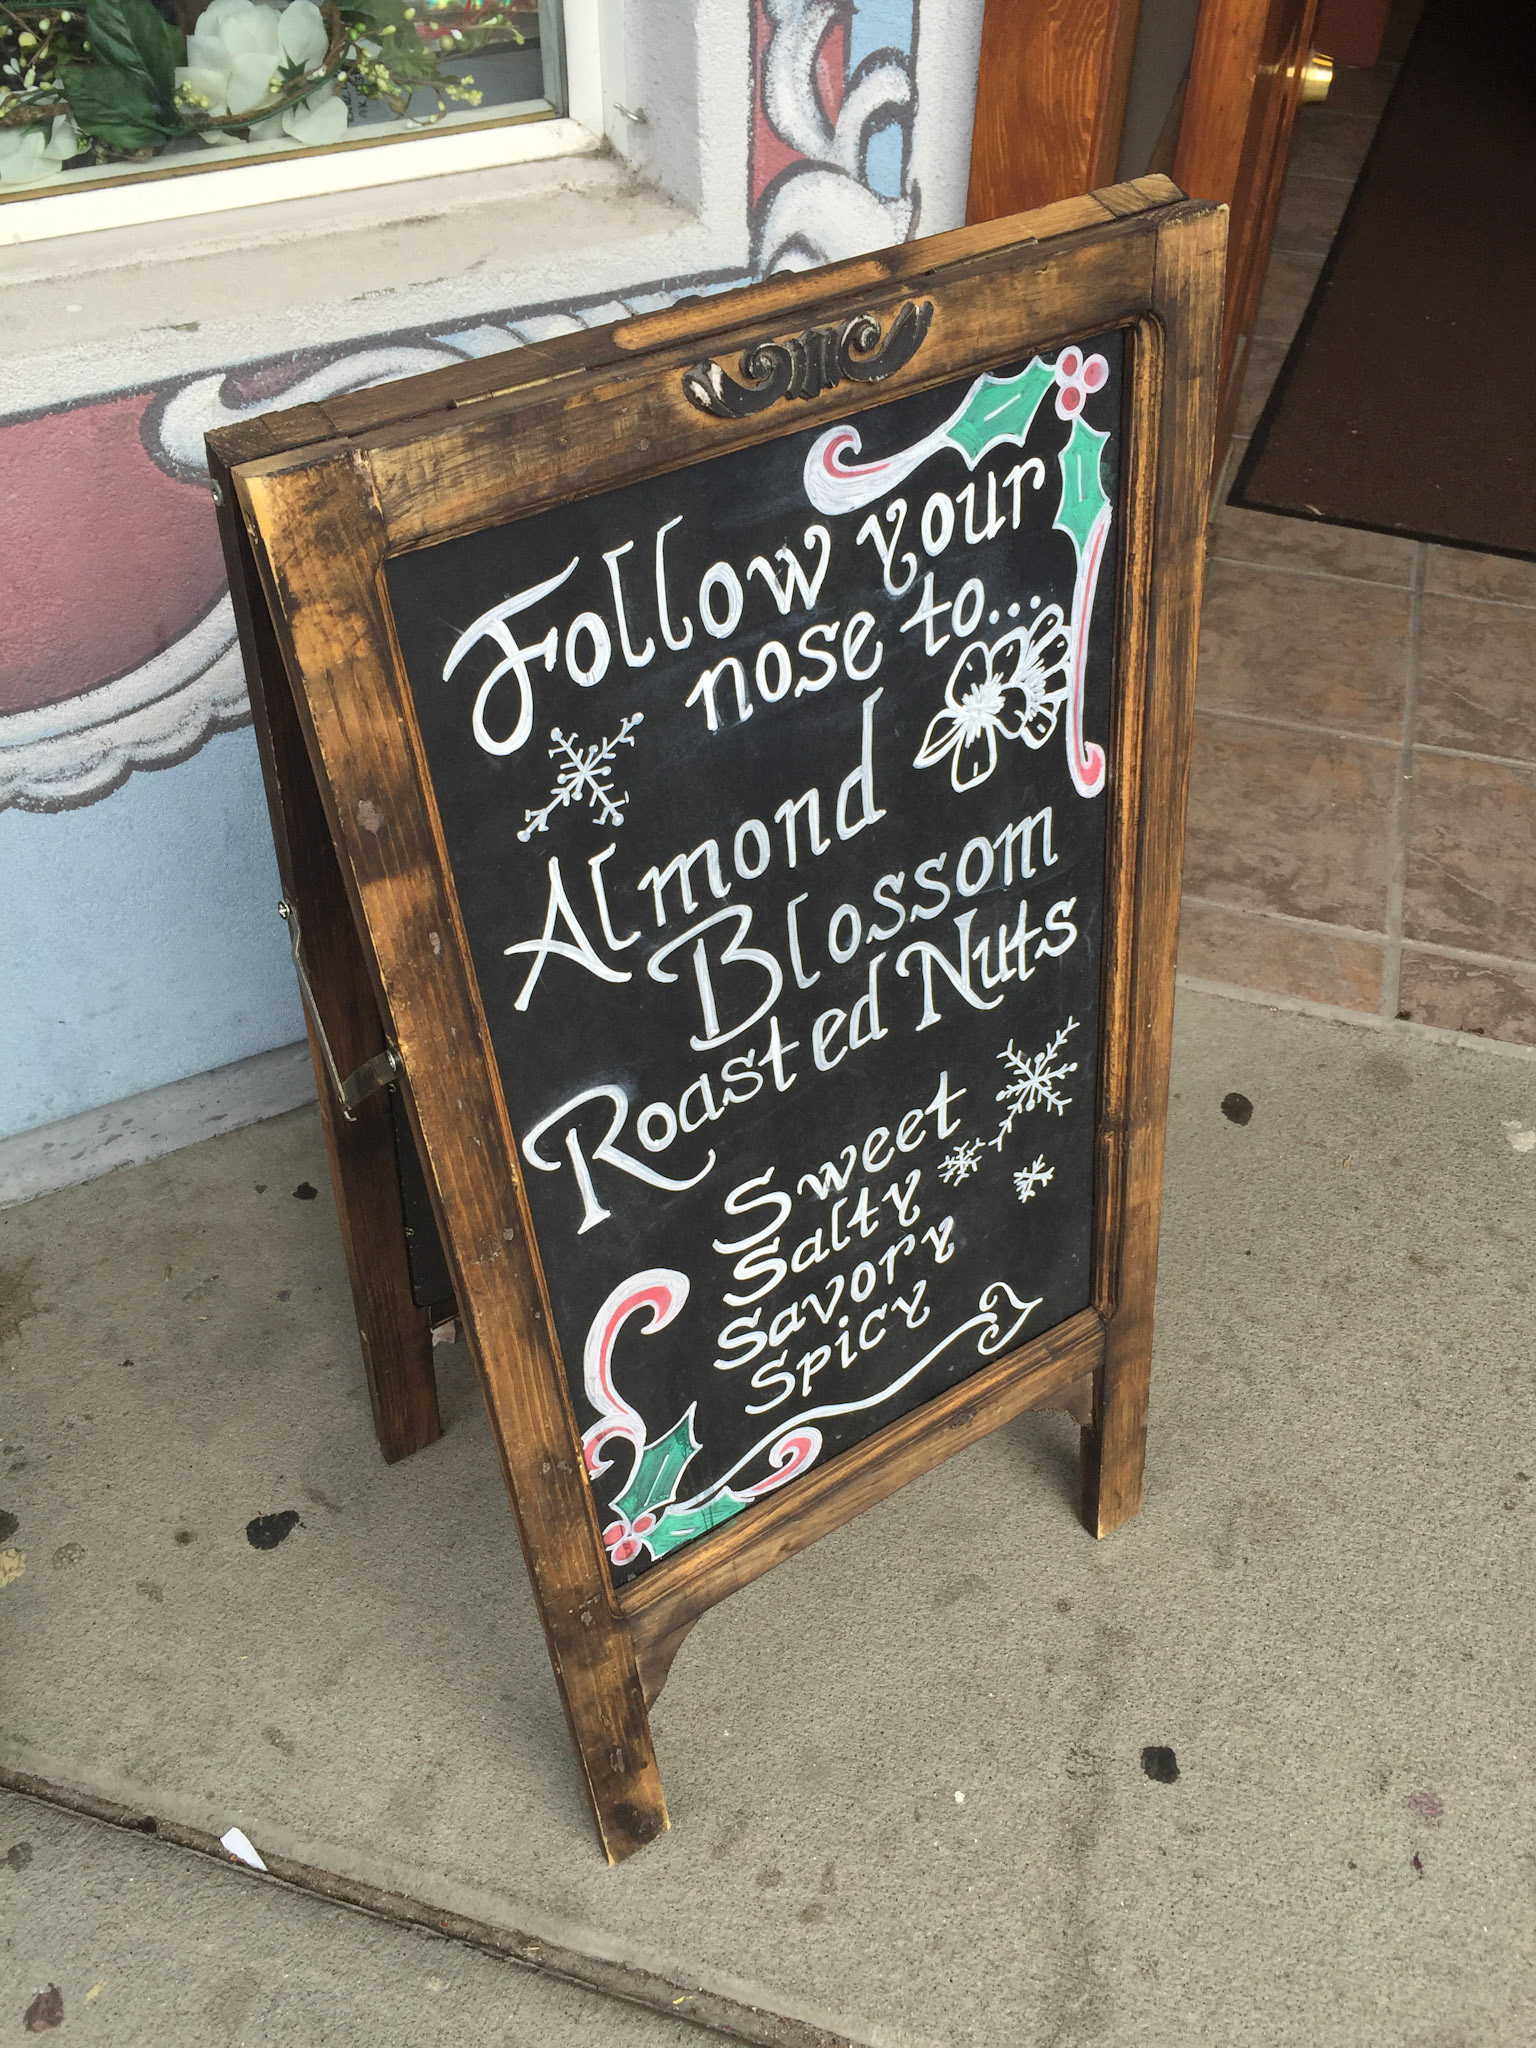 Follow your
nose to...
Almond
Blossom
Roasted Nuts
Sweet
Salty
Savory
Spicy